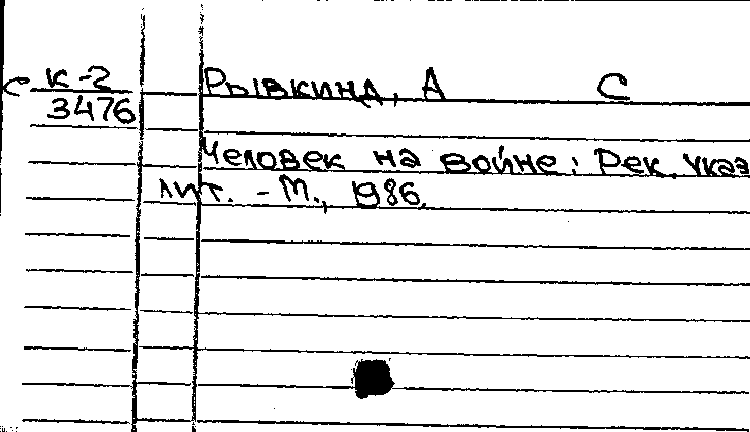 с К-2 Рывкина, А С
3476
Человек на войне: Рек. указ
лит. - М., 1986.